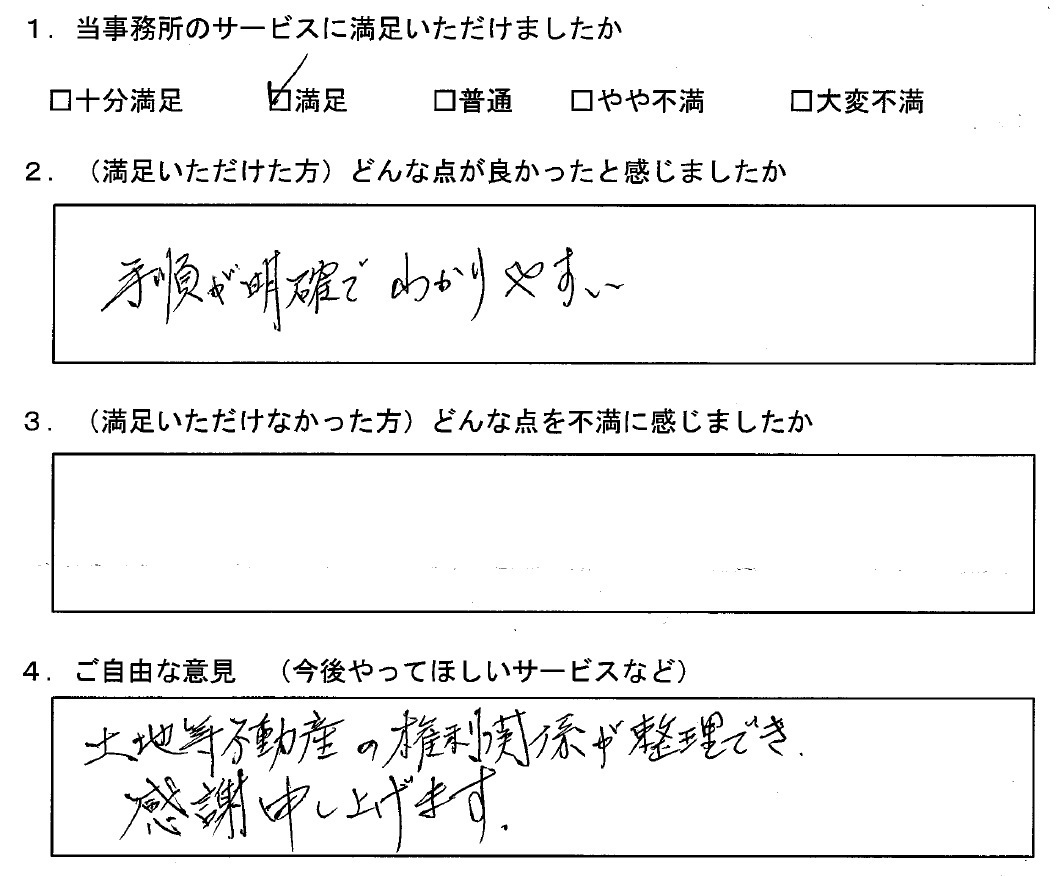 1．当事務所のサービスに満足いただけましたか
□十分満足 ☑満足 □普通 □やや不満 □大変不満
2．（満足いただけた方）どんな点が良かったと感じましたか
手順が明確でわかりやすい
3．（満足いただけなかった方）どんな点を不満に感じましたか
4．ご自由な意見 （今後やってほしいサービスなど）
土地等不動産の権利関係が整理でき.
感謝申し上げます.